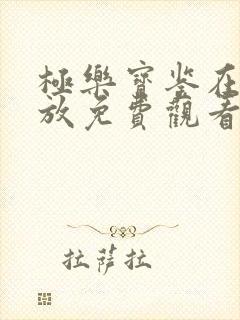 極樂寶鉴在
放免費觀看
拉薩拉